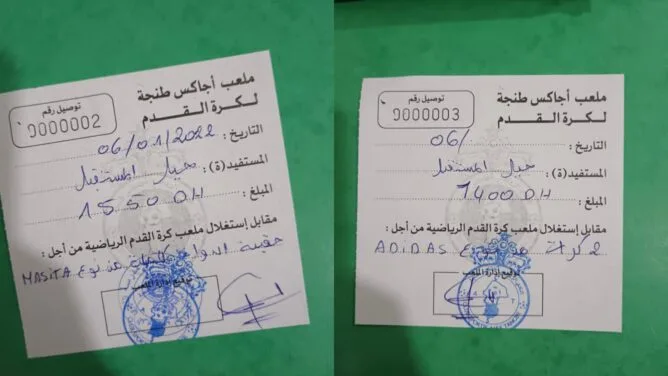 ملعب أجاكس طنجة
لكرة القدم
توصيل رقم
0000002
التاريخ : 06/01/2022
المستفيد(ة) : جيل المستقبل
المبلغ : 1550 DH
مقابل إستغلال ملعب كرة القدم الرياضية من أجل :
حقيبة من نوع MASITA
توقيع إدارة الملعب
ملعب أجاكس طنجة
لكرة القدم
توصيل رقم
0000003
التاريخ : 06/
المستفيد(ة) : جيل المستقبل
المبلغ : 1400 DH
مقابل إستغلال ملعب كرة القدم الرياضية من أجل :
2 كرات من نوع ADIDAS
توقيع إدارة الملعب